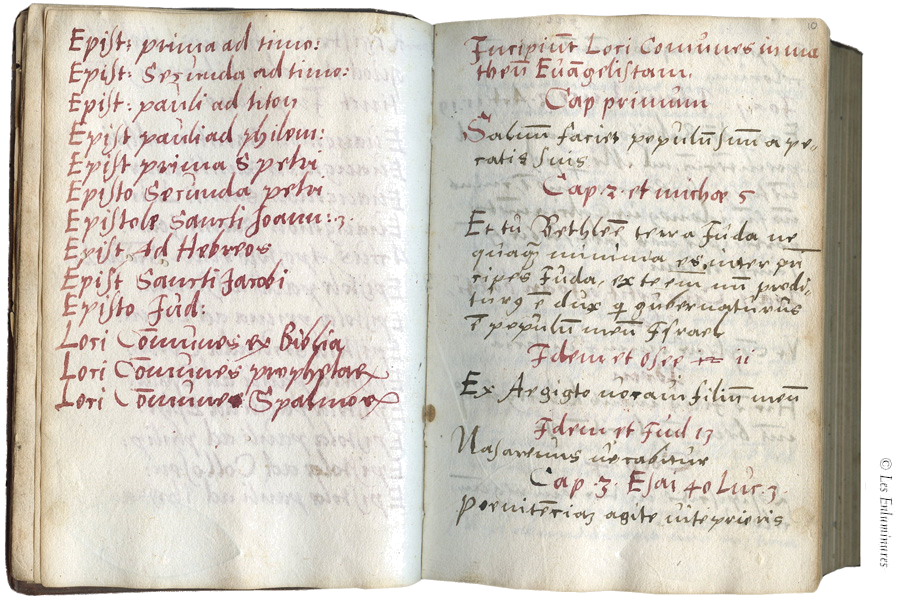 Epist: prima ad timo:
Epist: Secunda ad timo:
Epist: pauli ad titon
Epist pauli ad philem:
Epist prima S petri
Episto Secunda petri
Epistole Sancti Joann: 3.
Epist Ad Hebreos
Epist Sancti Jacobi
Episto Jud:
Loci Cōmunes ex Biblia
Loci Cōmunes prophetaꝝ
Loci Cōmunes Spalmoꝝ
10
Incipiūt Loci Comunes in ma
theū Euāgelistam.
Cap primum
Saluū faciet populū suū a pe-
catis suis
Cap. 2. et michæ 5
Et tu Bethleē terra Juda ne
quaq̄ minima es inter prī
cipes Juda, ex te em̄ mī prodi-
tur9 ē dux q̄ gubernaturus
ē populū meū Israel
Idem et osee 11
Ex Aegipto uocaui filiū meū
Idem et Jud 13
Nasareuus uocabitur
Cap. 3. Esai 40 Luc. 3
poenitēciaȝ agite uite prioris
© Les Enluminures